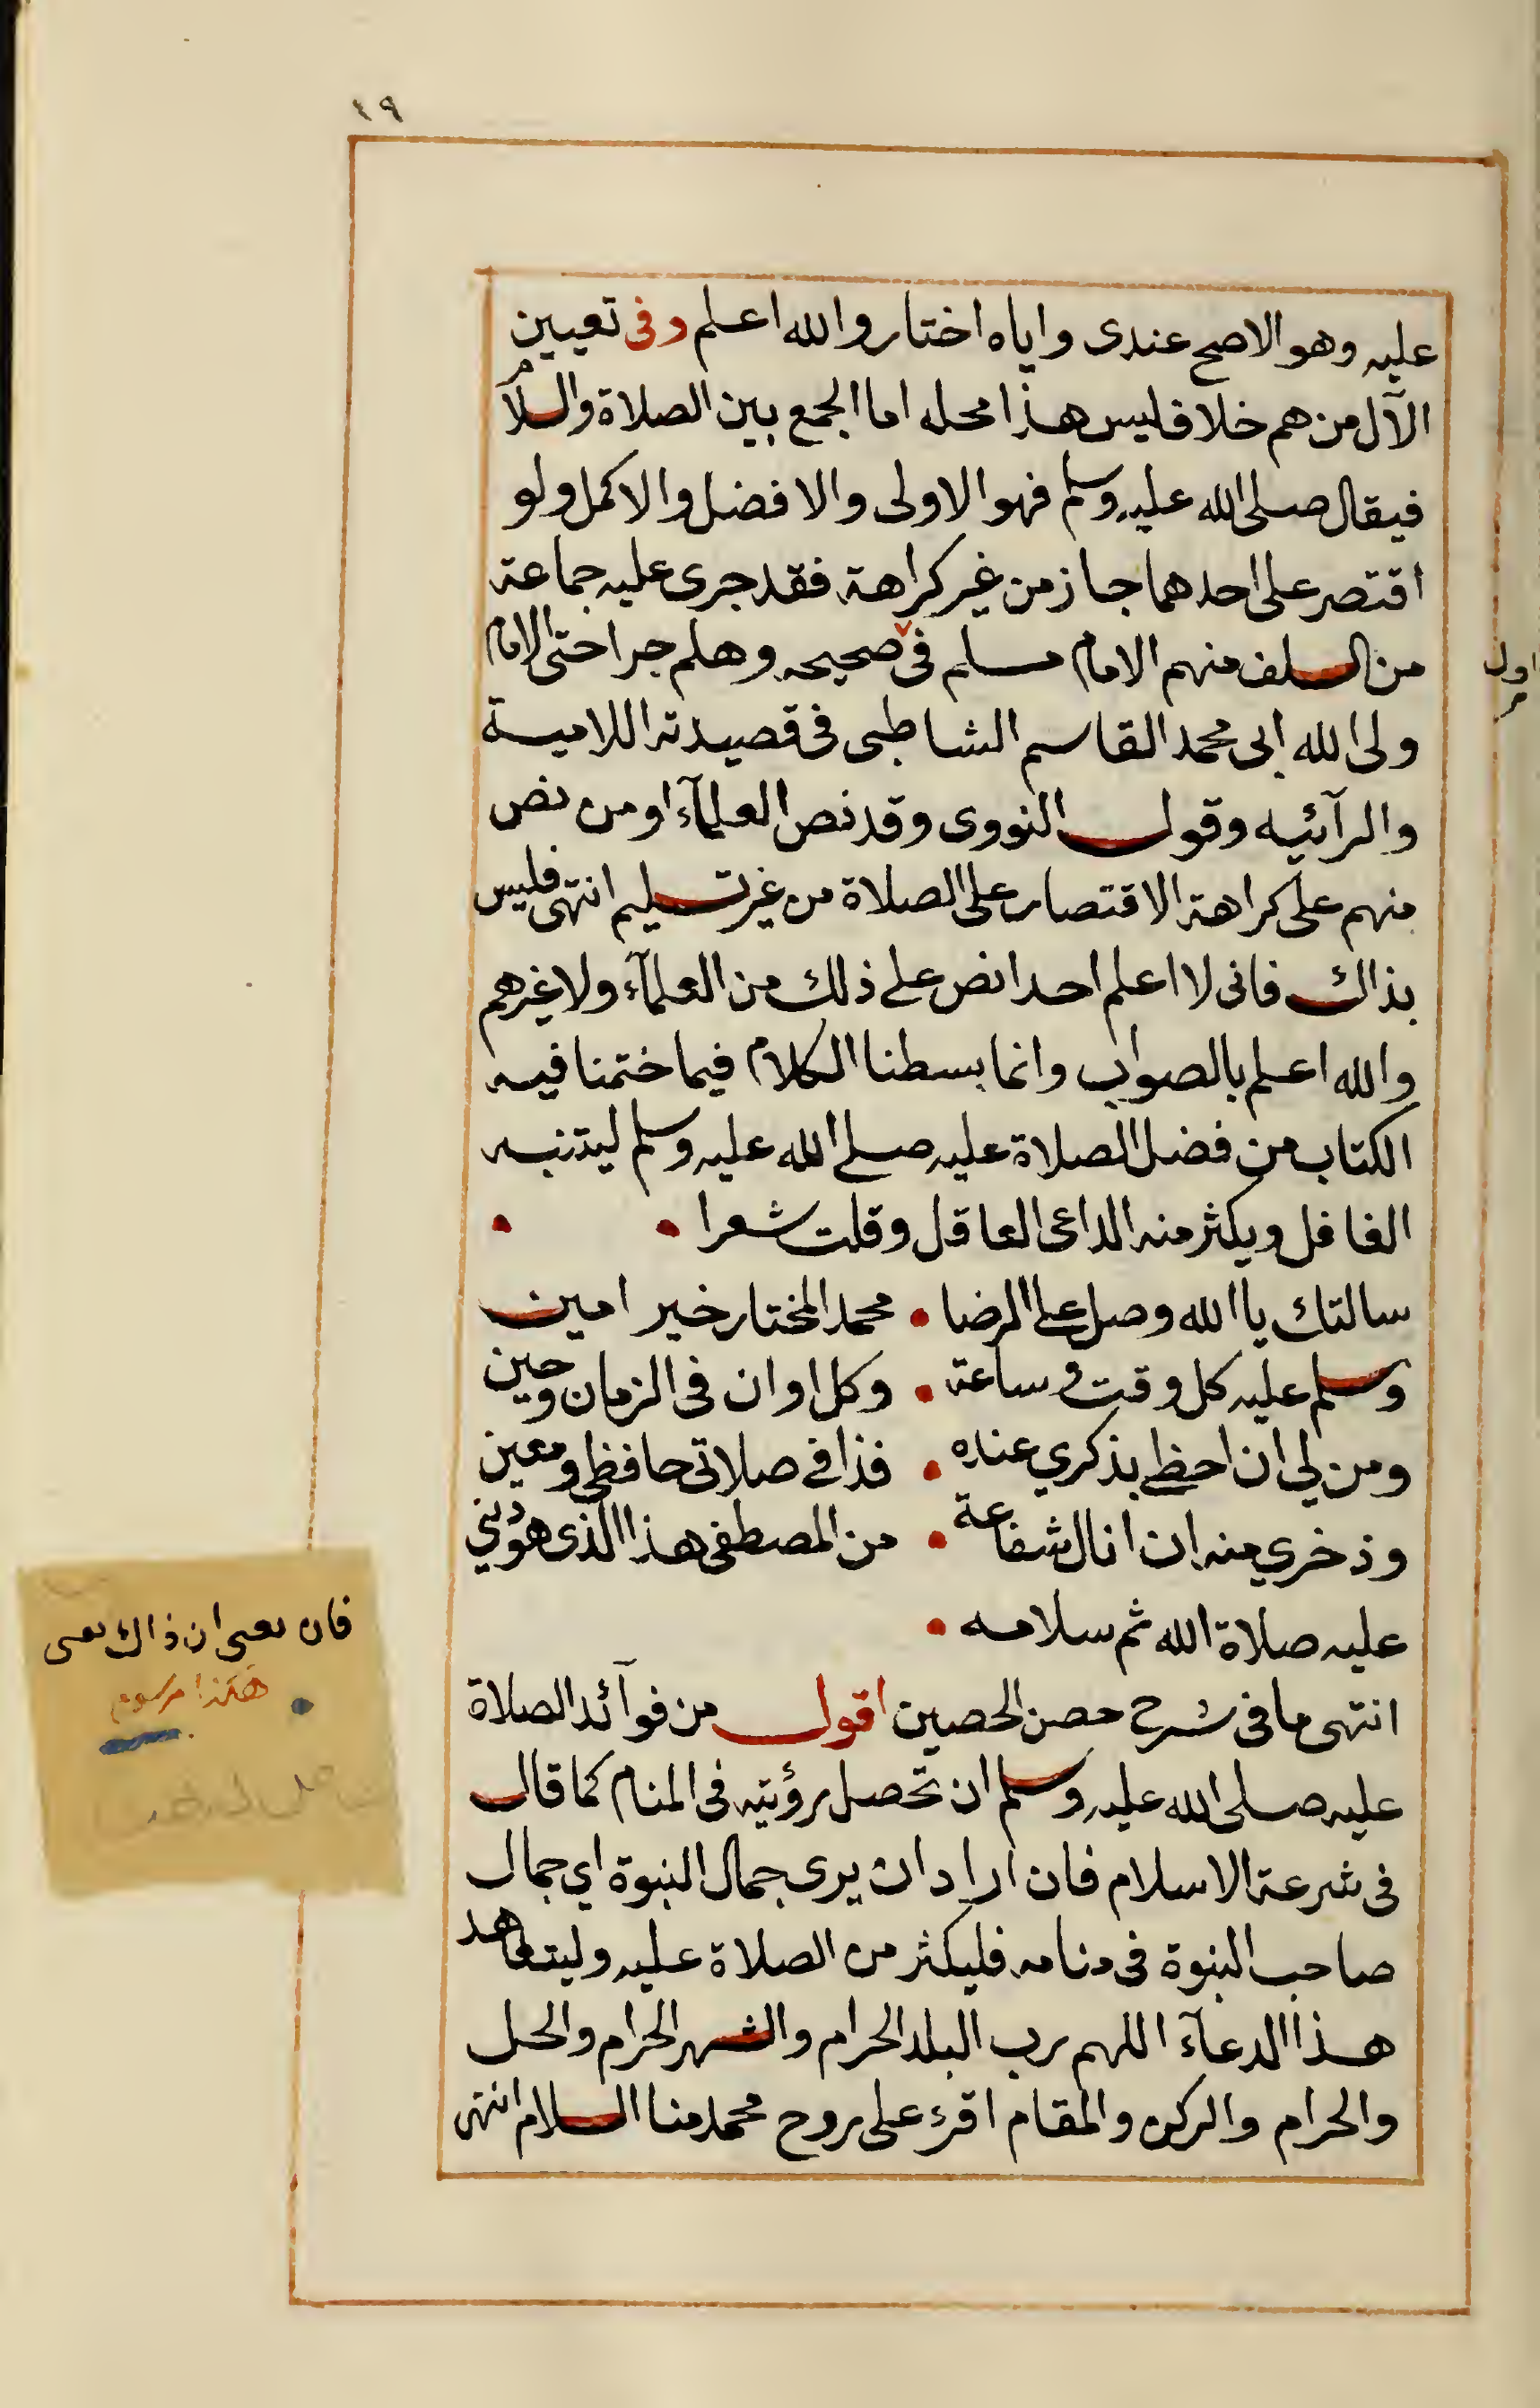 ٤٩
عليه وهو الاصح عندى واياه اختار والله اعلم وفى تعيين
الآل من هم خلافا ليس هذا محله اما الجمع بين الصلاة والسلام
فيقال صلى الله عليه وسلم فهو الاولى والافضل والاكمل ولو
اقتصر على احدهما جاز من غير كراهة فقد جرى عليه جماعة
من السلف منهم الامام مسلم فى صحيحه وهلم جرا حتى الامام
ولى الله ابى محمد القاسم الشاطبى فى قصيدته اللامية
والرآئيه وقول النووى وقد نص العلمآء او من نص
منهم على كراهة الاقتصار على الصلاة من غير تسليم انتهى فليس
بذاك فانى لا اعلم احدا نص على ذلك من العلمآء ولا غيرهم
والله اعلم بالصواب وانما بسطنا الكلام فيما ختمنا فيه
الكتاب من فضل الصلاة عليه صلى الله عليه وسلم ليتنبه
الغافل ويكثر منه الداعى العاقل وقلت شعرا •   •
سالتك يا الله وصل على الرضا • محمد المختار خير امين
وسلم عليه كل وقت وساعة • وكل اوان فى الزمان وحين
ومن لي ان احظى بذكري عنده • فذا فى صلاتى حافظى ومعين
وذخري منه ان انال شفاعة • من المصطفى هذا الذى هو ديني
عليه صلاة الله ثم سلامه •
انتهى ما فى شرح حصن الحصين اقول من فوآئد الصلاة
عليه صلى الله عليه وسلم ان تحصل رؤيته فى المنام كما قال
فى شرعة الاسلام فان اراد ان يرى جمال النبوة اي جمال
صاحب النبوة فى منامه فليكثر من الصلاة عليه وليتعاهد
هذا الدعآء اللهم رب البلد الحرام والشهر الحرام والحل
والحرام والركن والمقام اقرئ على روح محمد منا السلام انتهى
اول
فان نعى ان ذاك نعى
هكذا مرسوم